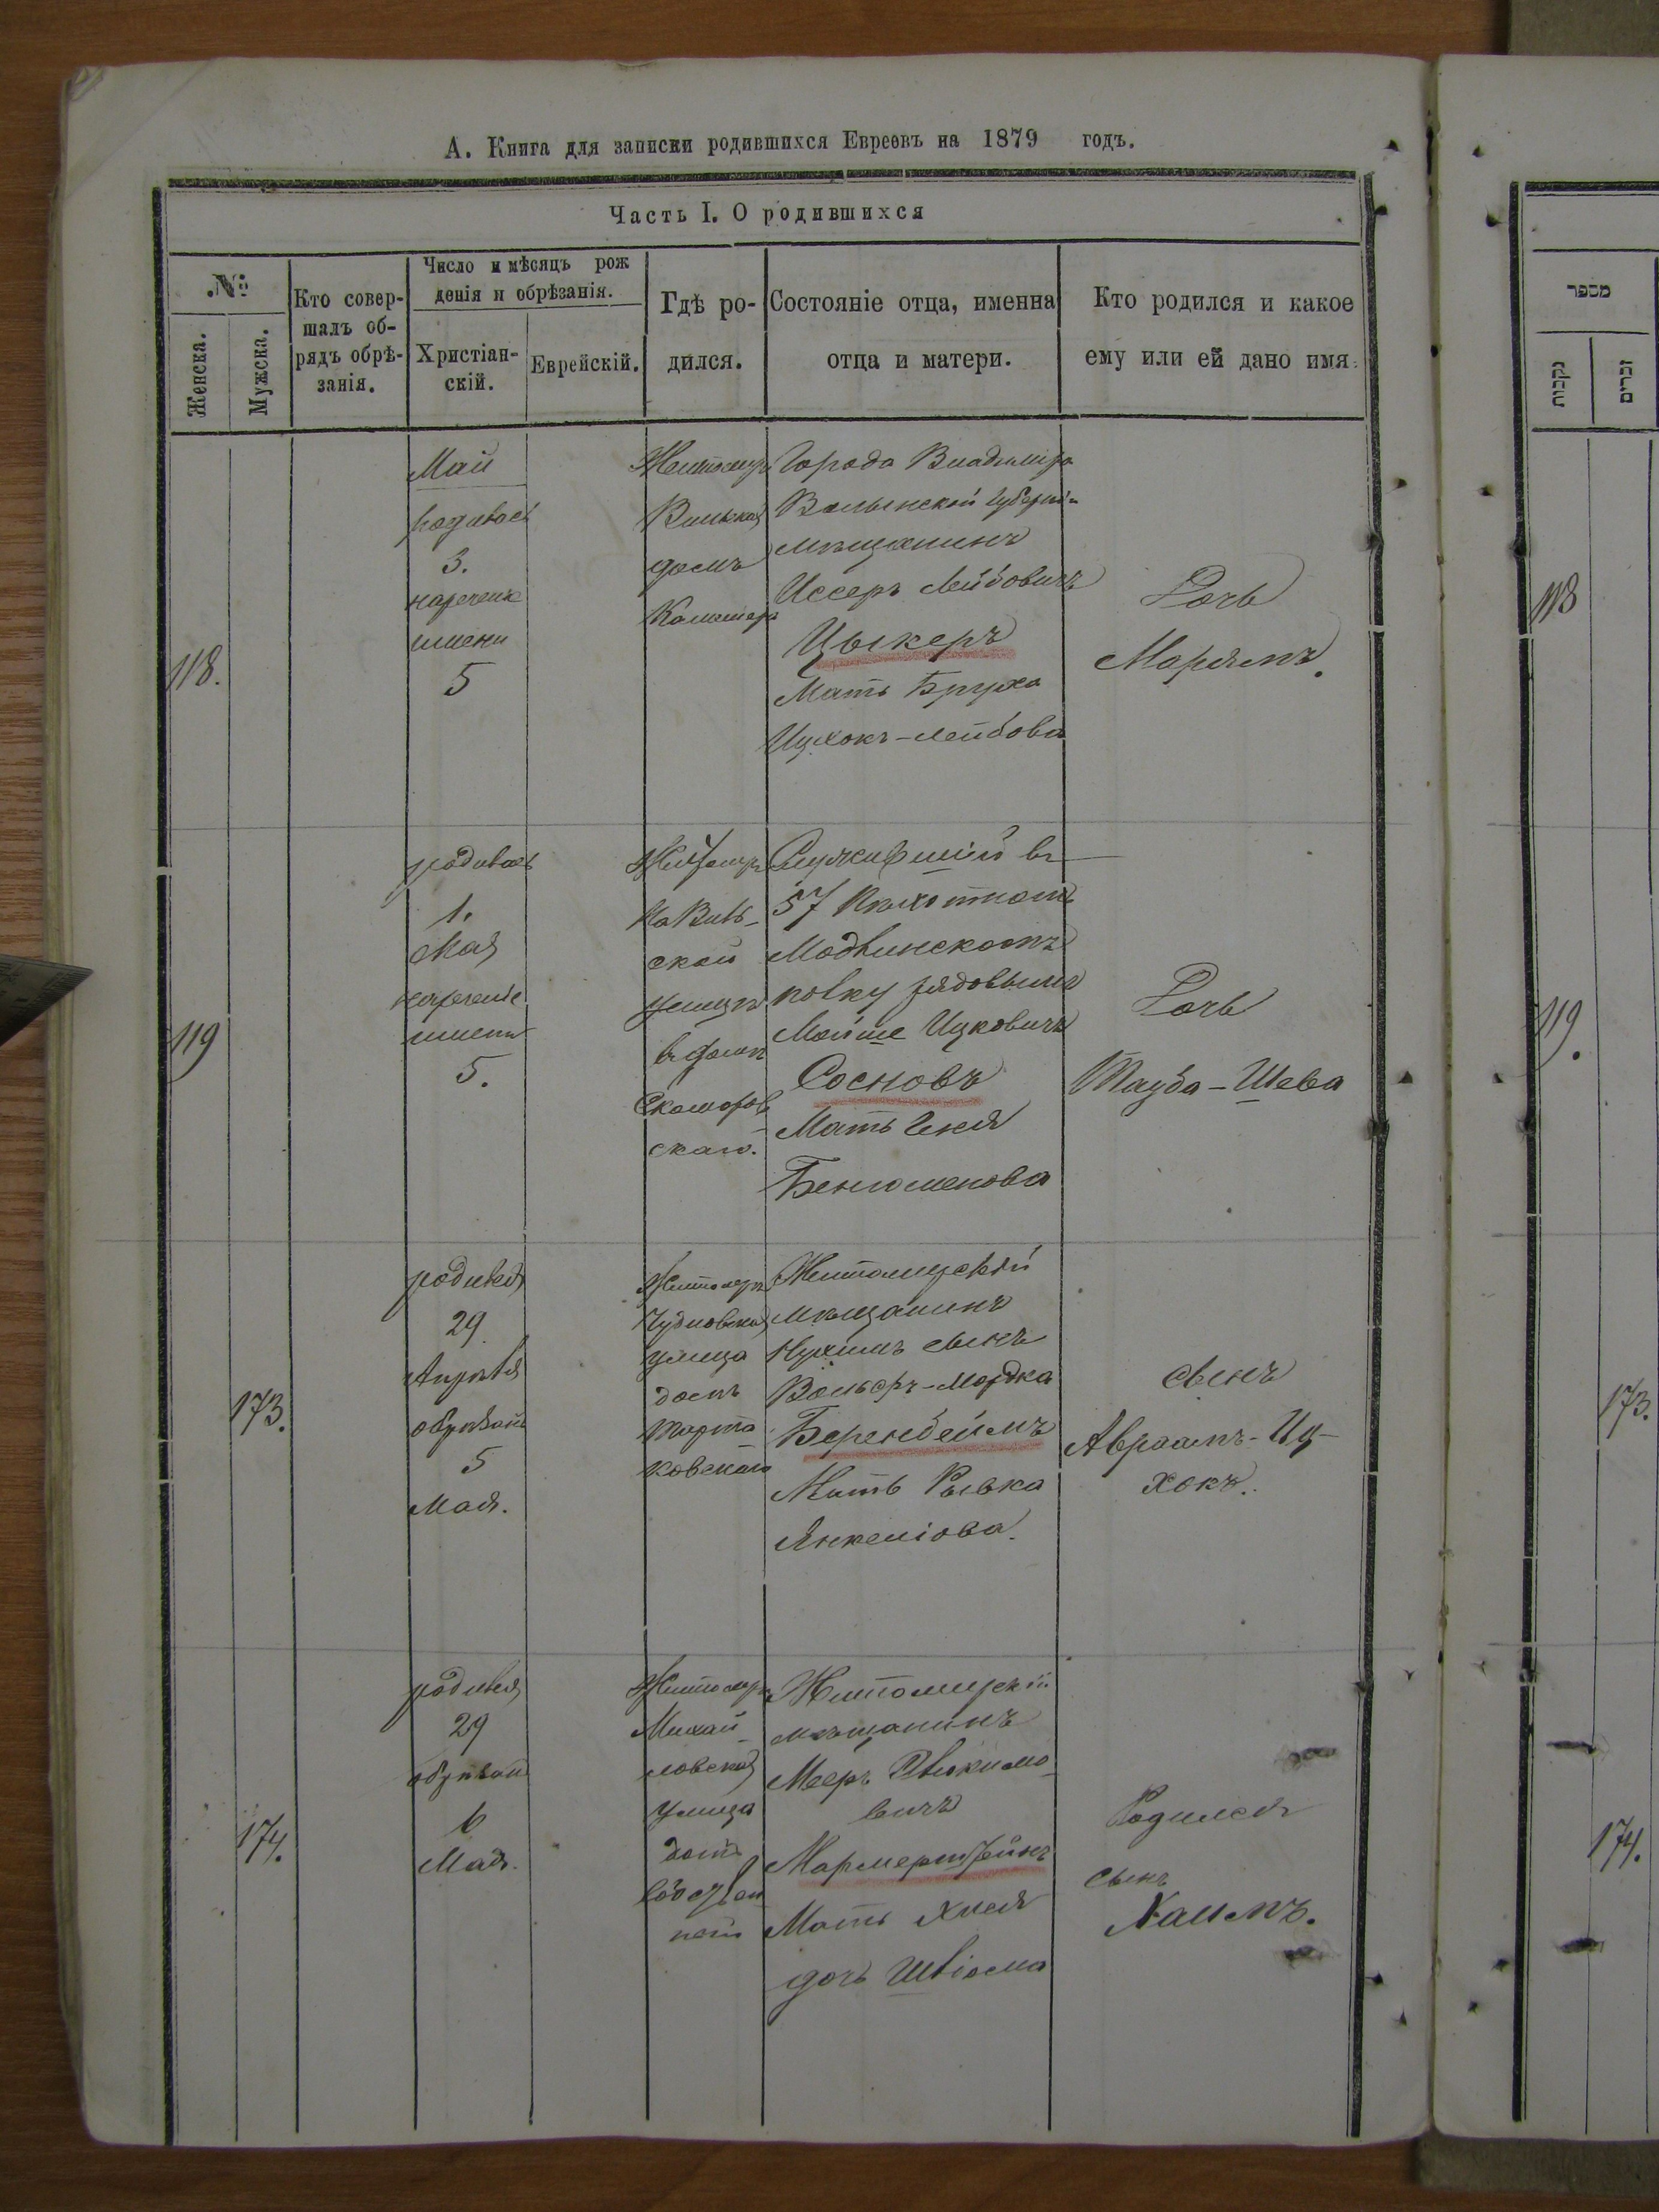 А. Книга для записки родившихся Евреевъ на 1879 годъ.
Часть I. О родившихся
№
Женска.
Мужска.
Кто совер-
шалъ об-
рядъ обрѣ-
занія.
Число и мѣсяцъ рож
денія и обрѣзанія.
Христіан-
скій.
Еврейскій.
Гдѣ ро-
дился.
Состояніе отца, именна
отца и матери.
Кто родился и какое
ему или ей дано имя.
118.
Май
родилась
3.
наречение
имени
5
Житомиръ
Вильская
домъ
Города Владимира
Волынской Губерніи
мѣщанинъ
Иссеръ Лейбовичъ
Цыкеръ
Мать Бруха
Ицхокъ-Лейбова
Дочь
Марьямъ.
119
родилась
1.
Мая
наречение
имени
5.
Житомиръ
На Виль-
ской
улицѣ
в домѣ
Скоморов
скаго.
Служившій въ
57 Пѣхотномъ
Модлинскомъ
полку рядовымъ
Мойше Ицковичъ
Сосновъ
Мать Геня
Беньоменова
Дочь
Тауба-Шева
173.
родился
29
Апрѣля
обрѣзанъ
5
Мая.
Житомиръ
Чудновская
улица
домъ
Торта
ковскаго
Житомирскій
мѣщанинъ
Нухимъ сынъ
Вольфъ-Мордка
Беренбеймъ
Мать Рывка
Янкеліова.
сынъ
Авраамъ-Иц-
хокъ.
174.
родился
29
обрѣзанъ
6
Мая.
Житомиръ
Михай-
ловская
улица
домъ
Житомирскій
мѣщанинъ
Мееръ
вичъ
Мармерштейнъ
Мать Хная
дочь Шліома
Родился
сынъ
Хаимъ.
מספר
נקבות
זכרים
118
119.
173.
174.